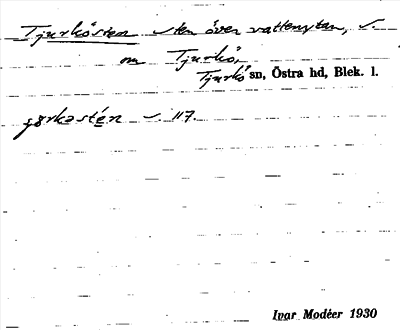 Tjurkösten sten över vattenytan, S.
om Tjurkö,
Tjurkö sn, Östra hd, Blek. l.
117.
Ivar Modéer 1930